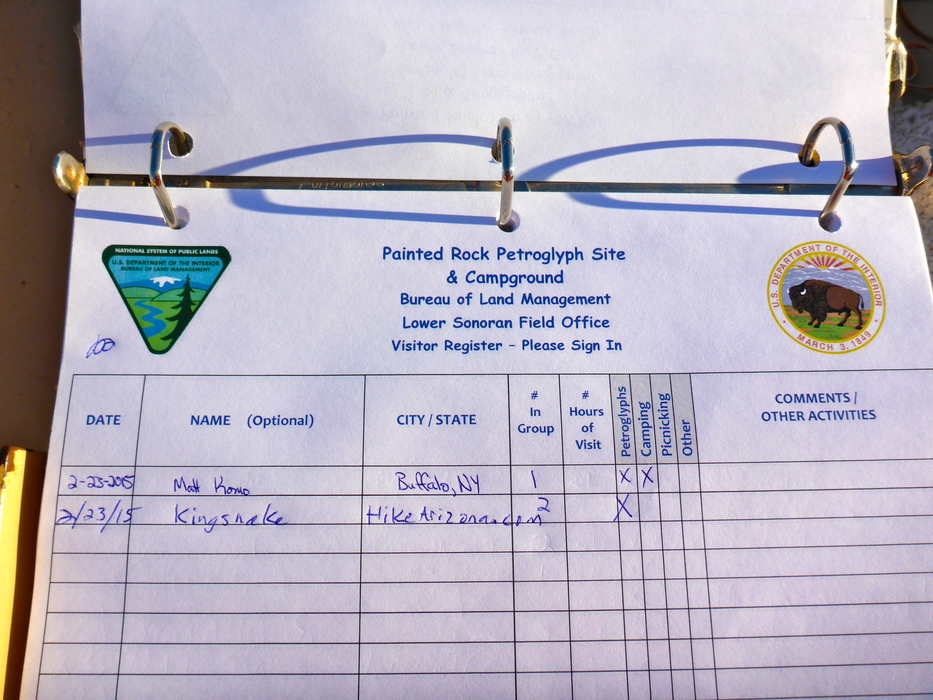 NATIONAL SYSTEM OF PUBLIC LANDS
U.S. DEPARTMENT OF THE INTERIOR
BUREAU OF LAND MANAGEMENT
Painted Rock Petroglyph Site
& Campground
Bureau of Land Management
Lower Sonoran Field Office
Visitor Register - Please Sign In
U.S. DEPARTMENT OF THE INTERIOR
MARCH 3, 1849
DATE
NAME (Optional)
CITY / STATE
#
In
Group
#
Hours
of
Visit
Petroglyphs
Camping
Picnicking
Other
COMMENTS /
OTHER ACTIVITIES
2-23-2015 Matt Buffalo, NY 1 X X
2/23/15 Kingsnake HikeArizona.com 2 X